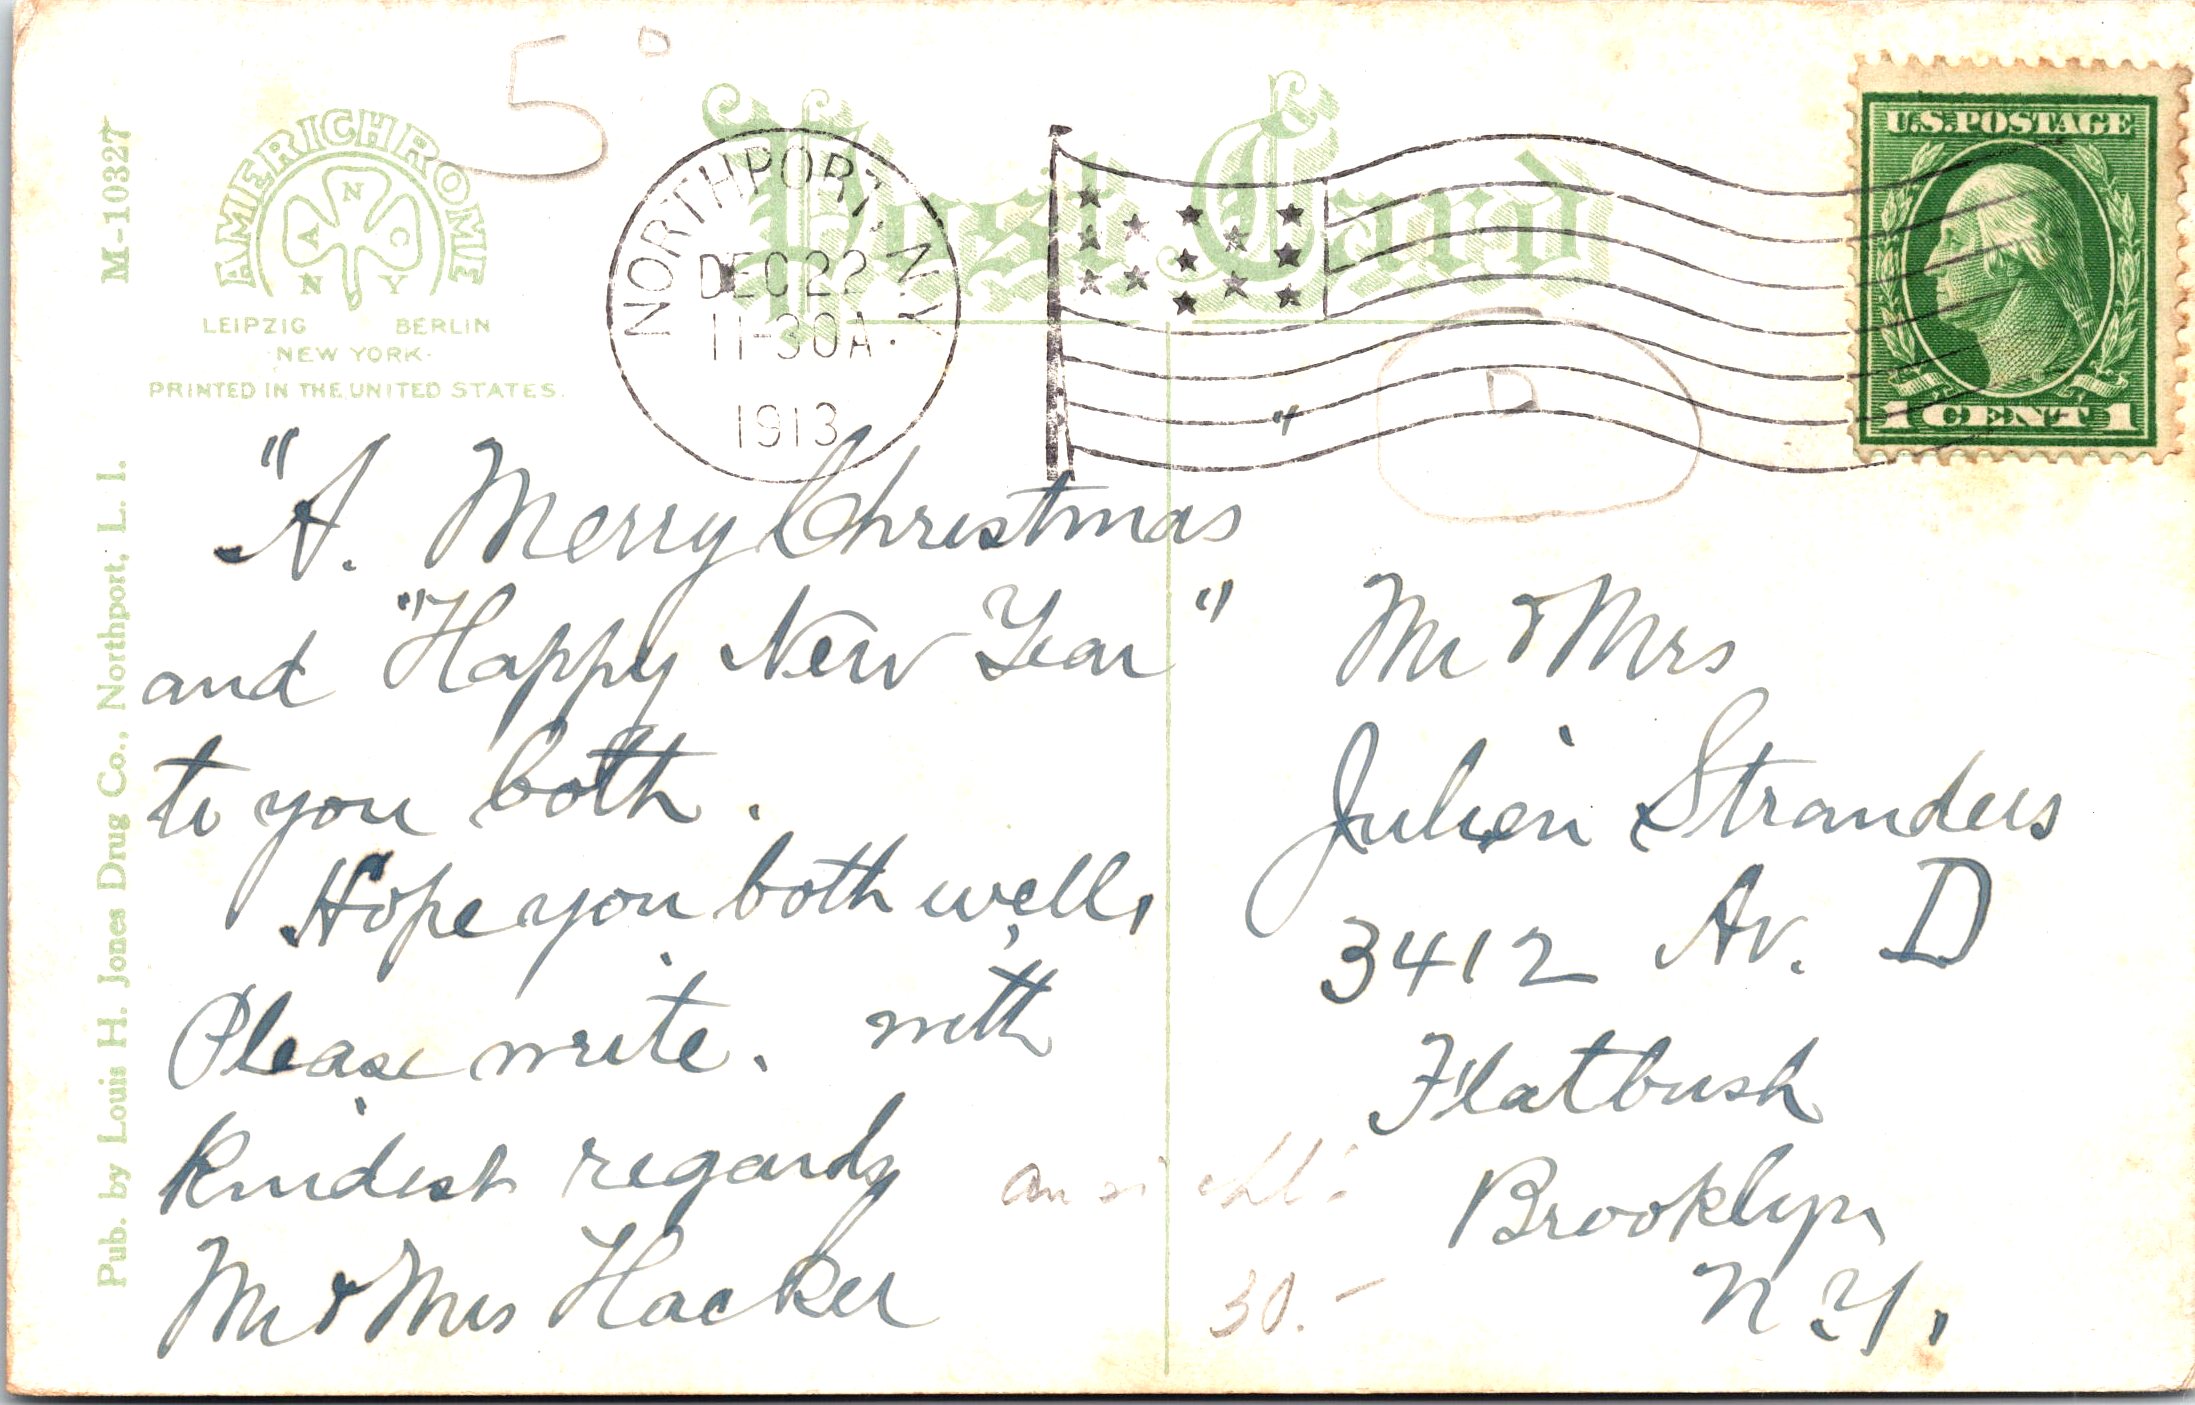 5°
M-10327
AMERICHROME
A N C
N Y
LEIPZIG BERLIN
·NEW YORK·
PRINTED IN THE UNITED STATES.
Pub. by Louis H. Jones Drug Co., Northport, L. I.
Post Card
NORTHPORT, N.Y.
DEC 22
11-30A.
1913
U.S. POSTAGE
1 CENT 1
D
"A. Merry Christmas "
and "Happy New Year"
to you both.
Hope you both well,
Please write. with
kindest regards
Mr & Mrs Hacker
Mr & Mrs
Julien Stranders
3412 Av. D
Flatbush
Brooklyn
N.Y.
30.-